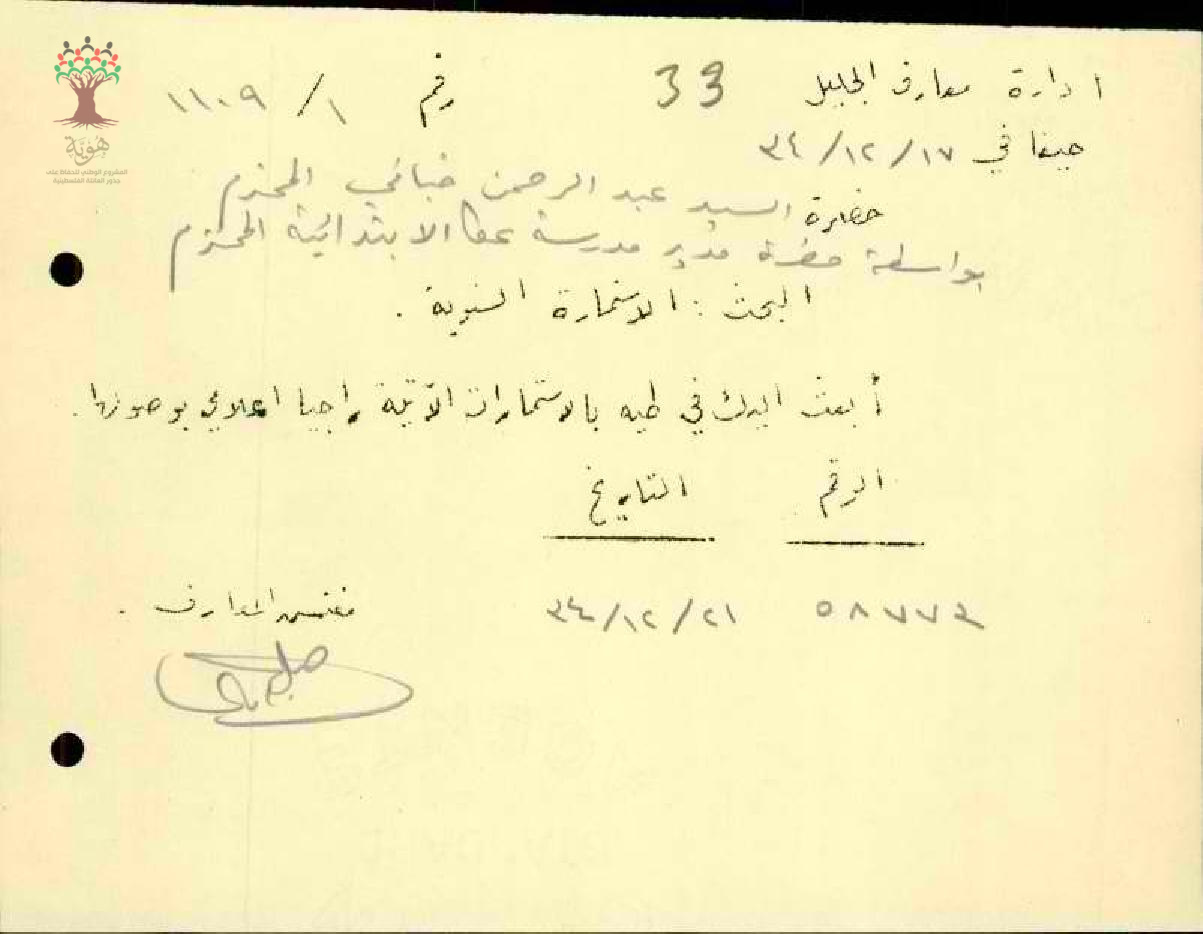 ادارة معارف الجليل 33 رقم ١ / ١١٠٩
حيفا في ١٧ / ١٢ / ٣٤
حضرة السيد عبد الرحمن المحترم
بواسطة حضرة مدير مدرسة عكا الابتدائية المحترم
البحث : الاستمارة السنوية .
أبعث اليك في طيه بالاستمارات الآتية راجيا اعلامي بوصولها .
الرقم التاريخ
٥٨٧٧٣ ٢١ / ١٢ / ٣٤
مفتش المعارف .
هُوِيَّة
المشروع الوطني للحفاظ على
جذور العائلة الفلسطينية